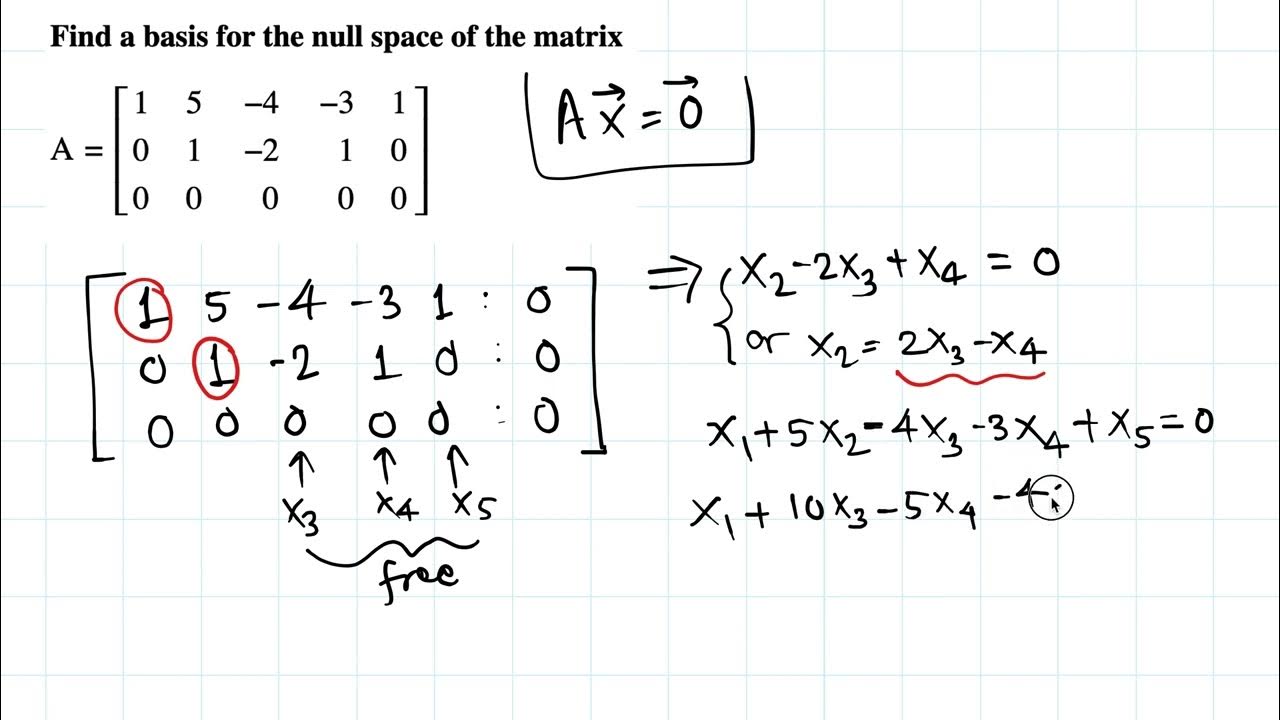 Find a basis for the null space of the matrix
A = [1 5 −4 −3 1]
[0 1 −2 1 0]
[0 0 0 0 0]
Ax⃗ = 0⃗
[1 5 -4 -3 1 : 0]
[0 1 -2 1 0 : 0]
[0 0 0 0 0 : 0]
↑ ↑ ↑
x₃ x₄ x₅
free
⇒ { x₂ - 2x₃ + x₄ = 0
or x₂ = 2x₃ - x₄
x₁ + 5x₂ - 4x₃ - 3x₄ + x₅ = 0
x₁ + 10x₃ - 5x₄ - 4